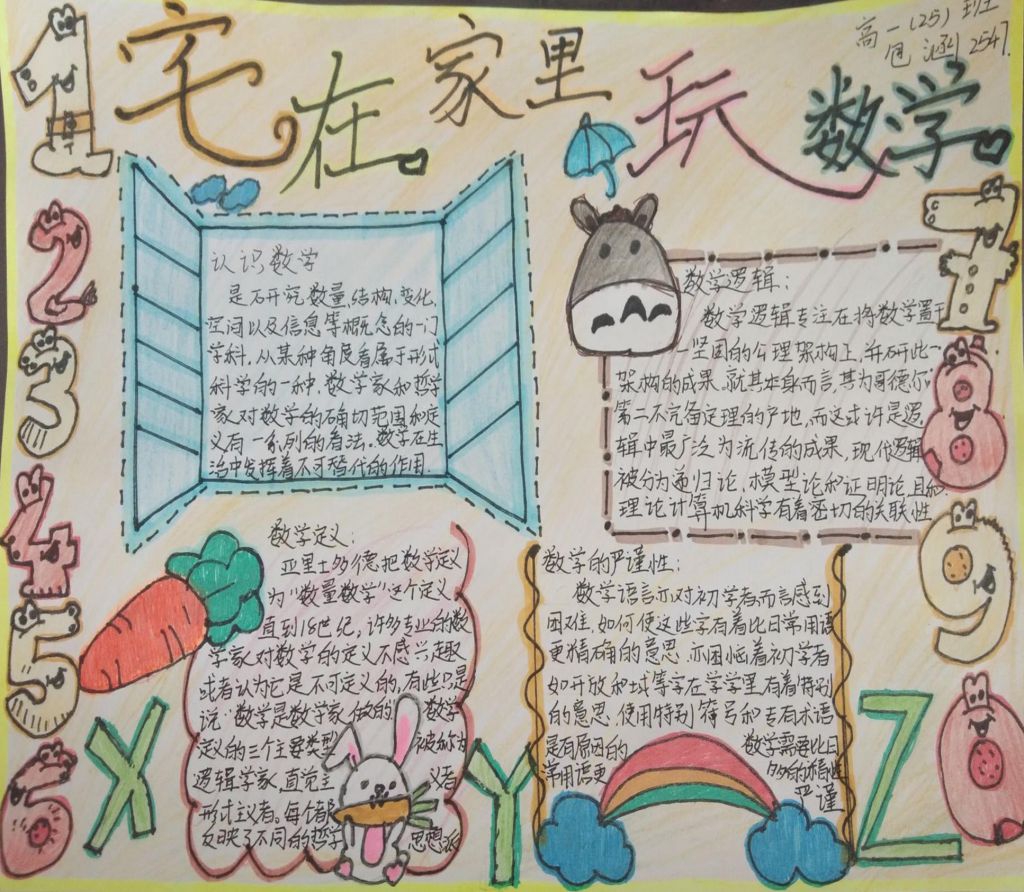 宅在家里玩数学
高一(25)班
包涵 2547
认识数学
是研究数量、结构、变化、
空间以及信息等概念的一门
学科,从某种角度看属于形式
科学的一种,数学家和哲学
家对数学的确切范围和定
义有一系列的看法。数学在生
活中发挥着不可替代的作用.
数学逻辑:
数学逻辑专注在将数学置于
一坚固的公理架构上,并研此一
架构的成果。就其本身而言,其为哥德尔
第二不完备定理的产地,而这或许是逻
辑中最广泛为流传的成果,现代逻辑
被分为递归论,模型论和证明论,且和
理论计算机科学有着密切的关联性
数学定义:
亚里士多德把数学定义
为“数量数学”这个定义
直到18世纪,许多专业的数
学家对数学的定义不感兴趣
或者认为它是不可定义的,有些只是
说“数学是数学家做的 数学
定义的三个主要类型 被称为
逻辑学家,直觉主 义者
形式主义者。每个都
反映了不同的哲学 思想派
数学的严谨性:
数学语言亦对初学者而言感到
困难,如何使这些字有着比日常用语
更精确的意思,亦困恼着初学者
如开放和域等字在学学里有着特别
的意思,使用特别符号和专有术语
是有原因的 数学需要比日
常用语更 多的精性
严谨
1
2
3
4
5
6
7
8
9
0
X
Y
Z